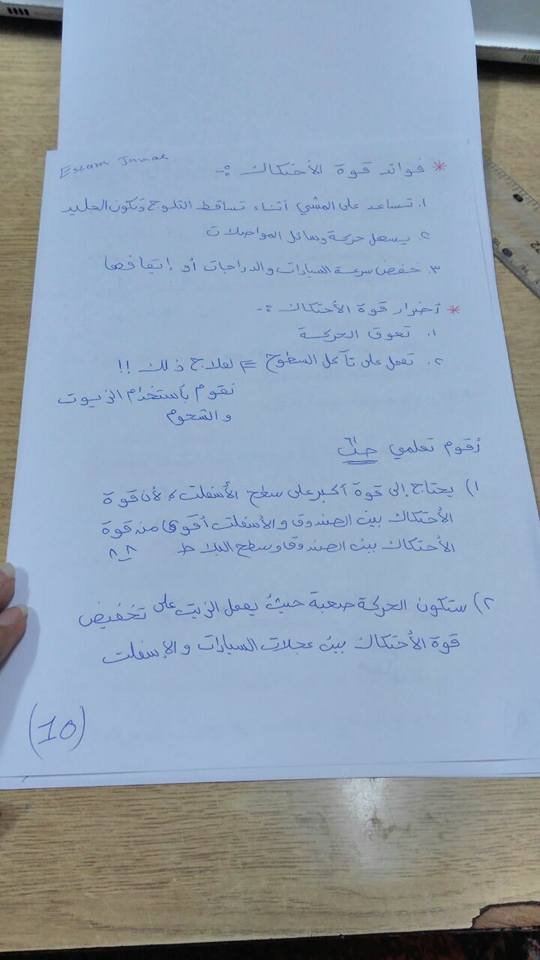 Esam Jamal
* فوائد قوة الأحتكاك :-
١. تساعد على المشي أثناء تساقط الثلوج وتكون الجليد
٢. يسهل حركة وسائل المواصلات
٣. خفض سرعة السيارات والدراجات أو إيقافها
* أضرار قوة الأحتكاك :-
١. تعوق الحركة
٢. تعمل على تآكل السطوح ⇐ لعلاج ذلك !!
نقوم بأستخدام الزيوت
والشحوم
أقوم تعلمي
١) يحتاج إلى قوة أكبر على سطح الأسفلت، لأن قوة
الأحتكاك بين الصندوق والأسفلت أقوى من قوة
الأحتكاك بين الصندوق وسطح البلاط ^-^
٢) ستكون الحركة صعبة حيثُ يعمل الزيت على تخفيض
قوة الأحتكاك بين عجلات السيارات والإسفلت
(10)